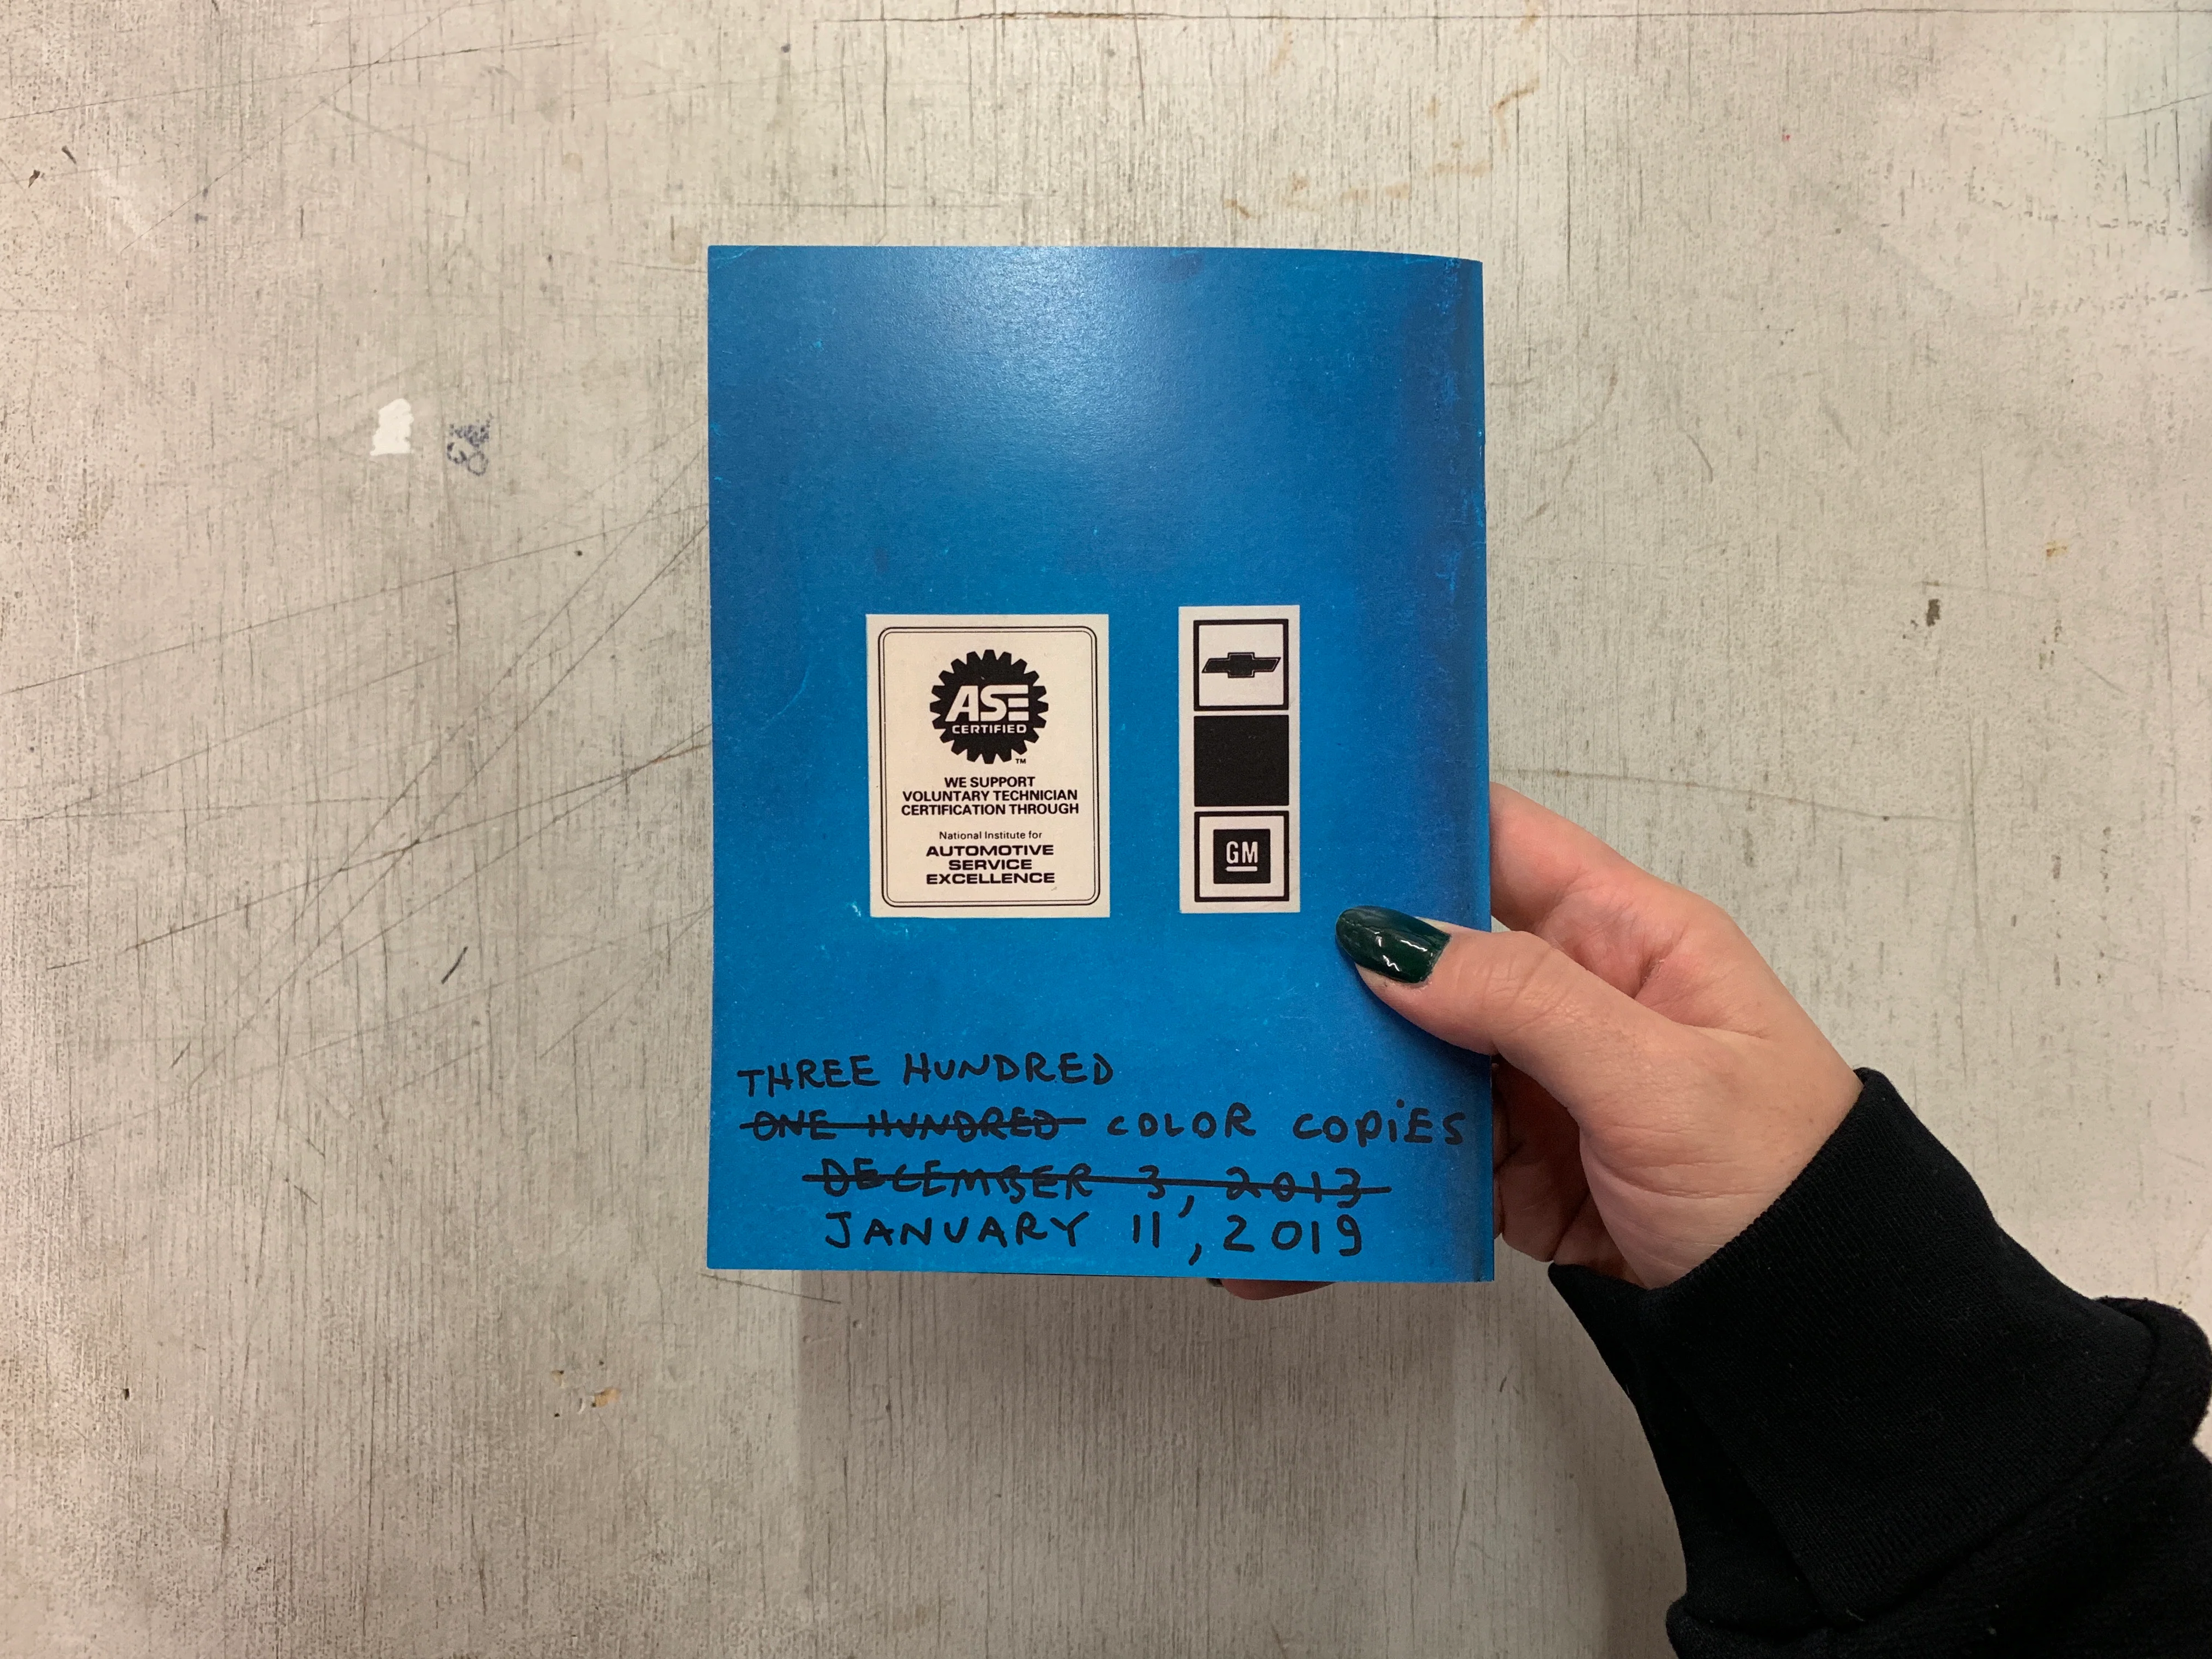 ASE
CERTIFIED
™
WE SUPPORT
VOLUNTARY TECHNICIAN
CERTIFICATION THROUGH
National Institute for
AUTOMOTIVE
SERVICE
EXCELLENCE
GM
THREE HUNDRED
ONE HUNDRED COLOR COPIES
DECEMBER 3, 2013
JANUARY 11, 2019